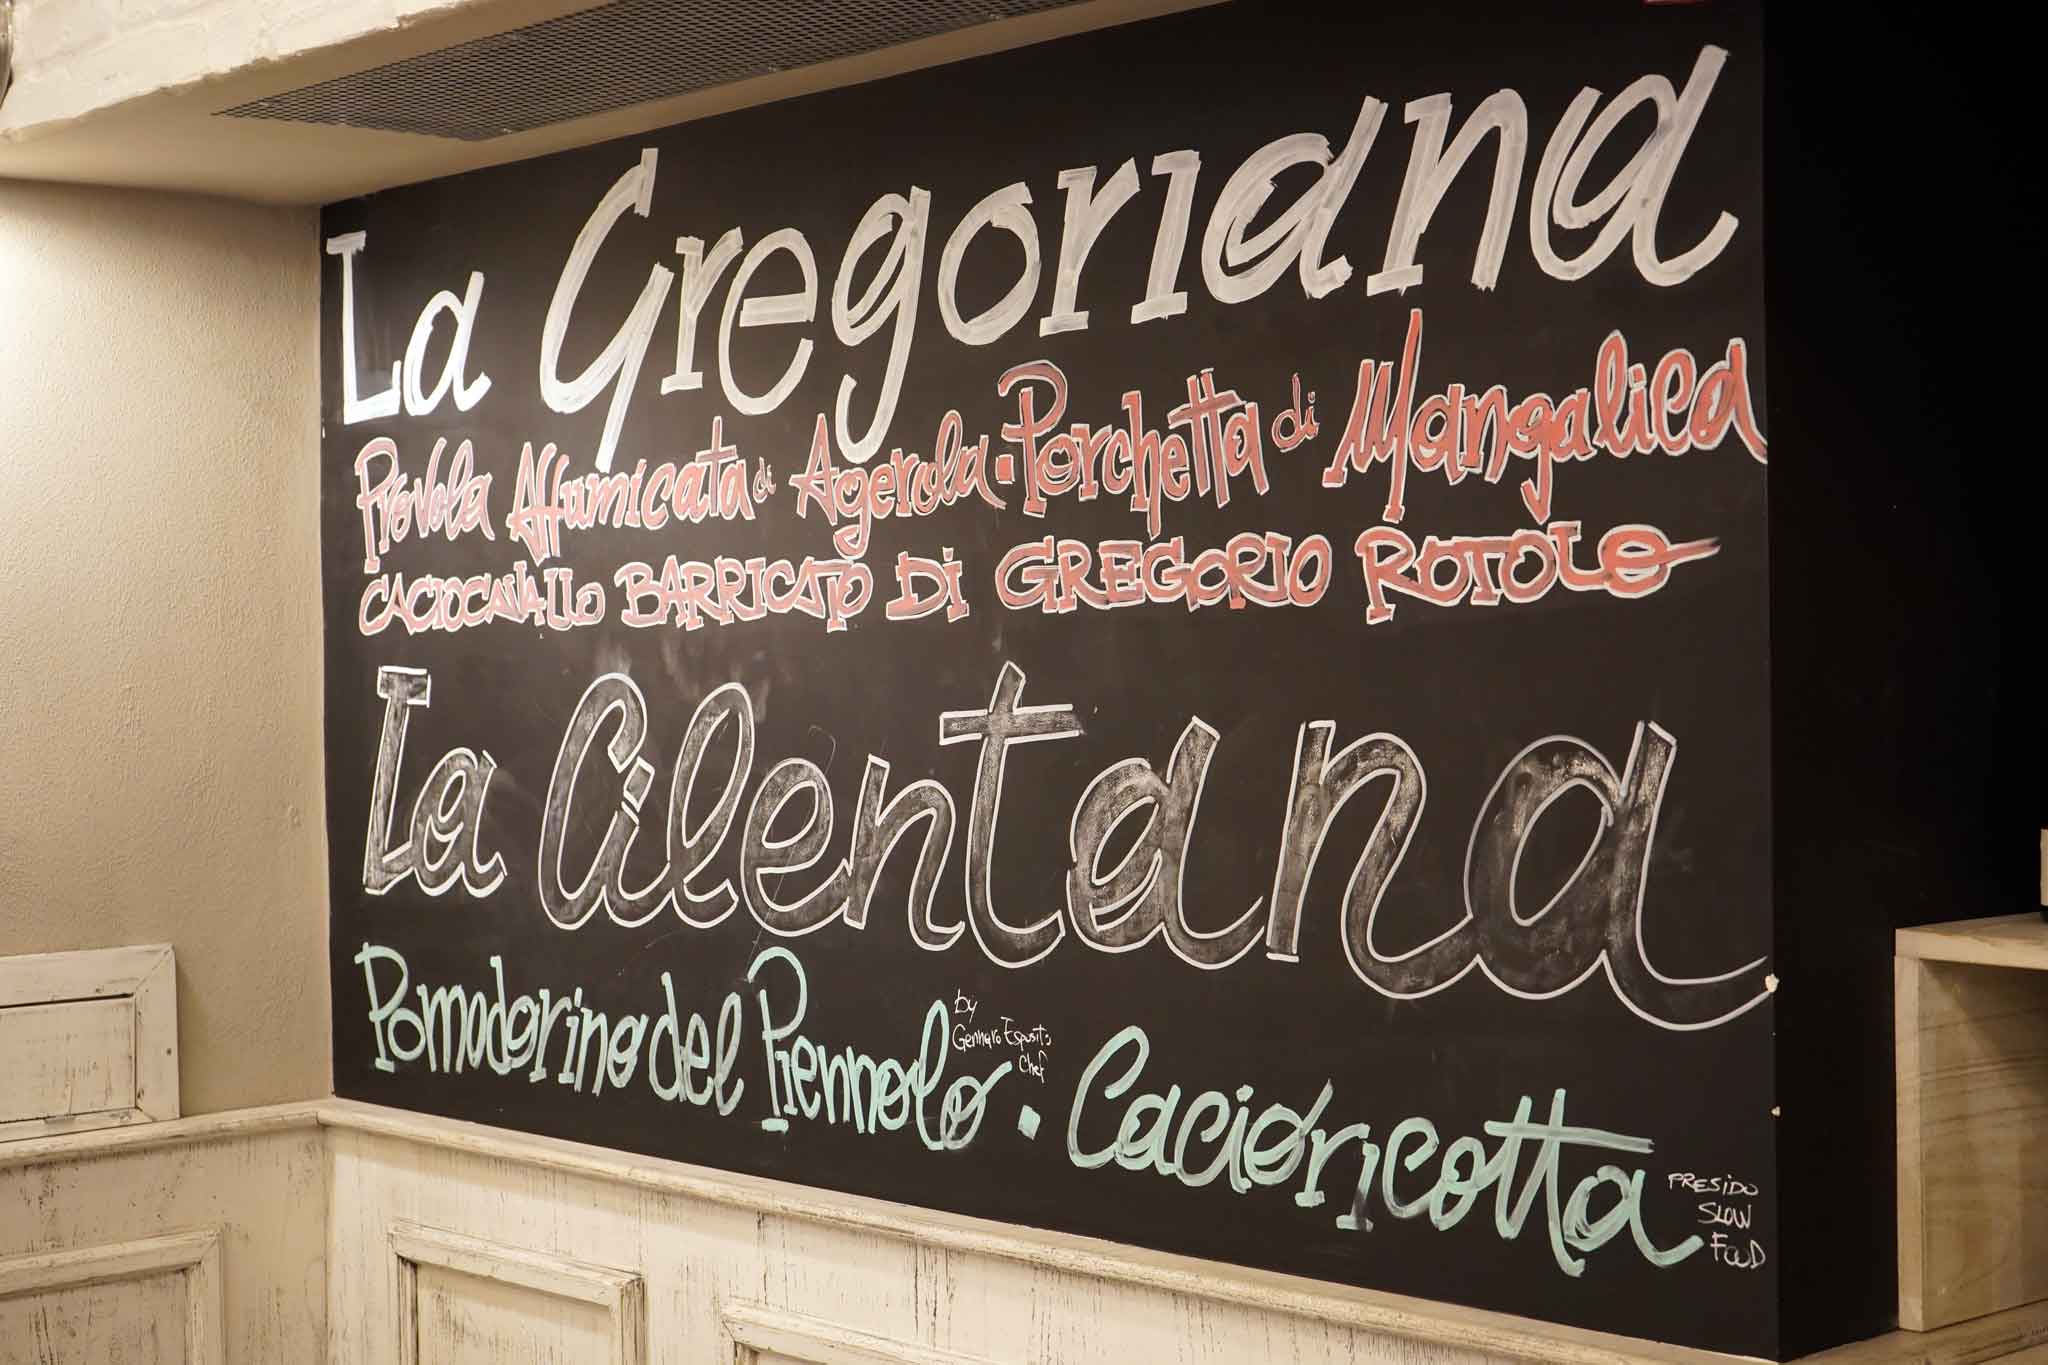 La Gregoriana
Provola Affumicata di Agerola · Porchetta di Mangalica
CACIOCAVALLO BARRICATO Di GREGORIO ROTOLO
La Cilentana
Pomodorino del Piennolo · Cacioricotta
by
Gennaro Esposito
Chef
PRESIDO
SLOW
FOOD